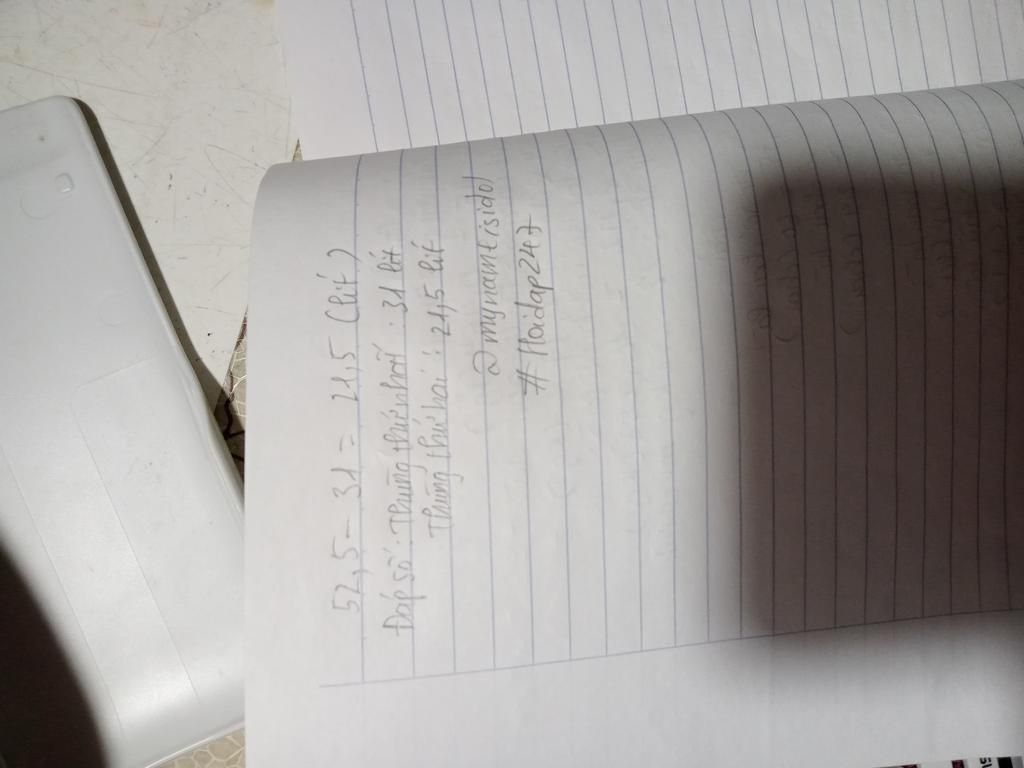 52,5 - 31 = 21,5 (lít)
Đáp số: Thùng thứ nhất: 31 lít
Thùng thứ hai: 21,5 lít
@mynameisidol
#Hoidap247